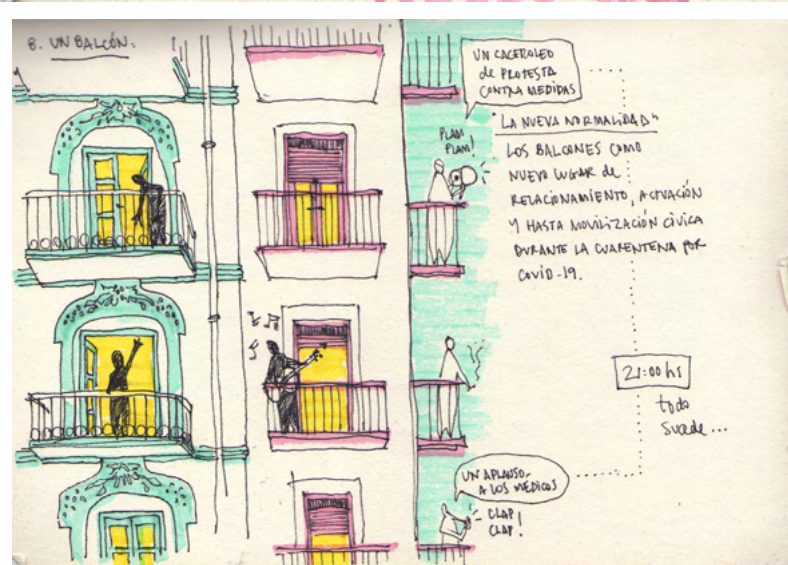 8. UN BALCÓN.
UN CACEROLEO
de PROTESTA
CONTRA MEDIDAS
PLAM
PLAM!
"LA NUEVA NORMALIDAD"
LOS BALCONES COMO
NUEVO LUGAR de
RELACIONAMIENTO, ACTUACIÓN
Y HASTA MOVILIZACIÓN CÍVICA
DURANTE LA CUARENTENA POR
COVID-19.
21:00 hs
todo
Sucede...
UN APLAUSO
A LOS MÉDICOS
CLAP!
CLAP!